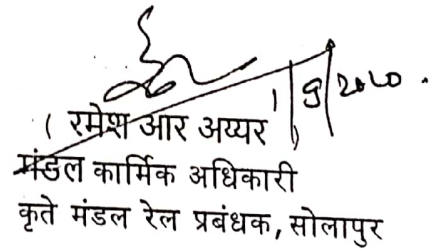 1/9/2020.
( रमेश आर अय्यर )
मंडल कार्मिक अधिकारी
कृते मंडल रेल प्रबंधक, सोलापुर